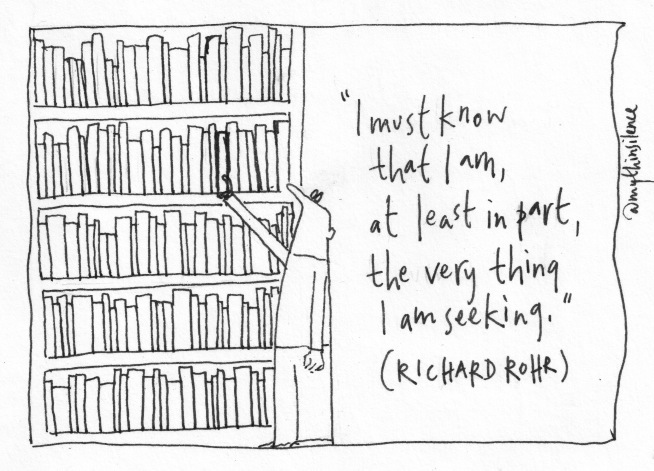 "I must know
that I am,
at least in part,
the very thing
I am seeking."
(RICHARD ROHR)
@mythinsilence